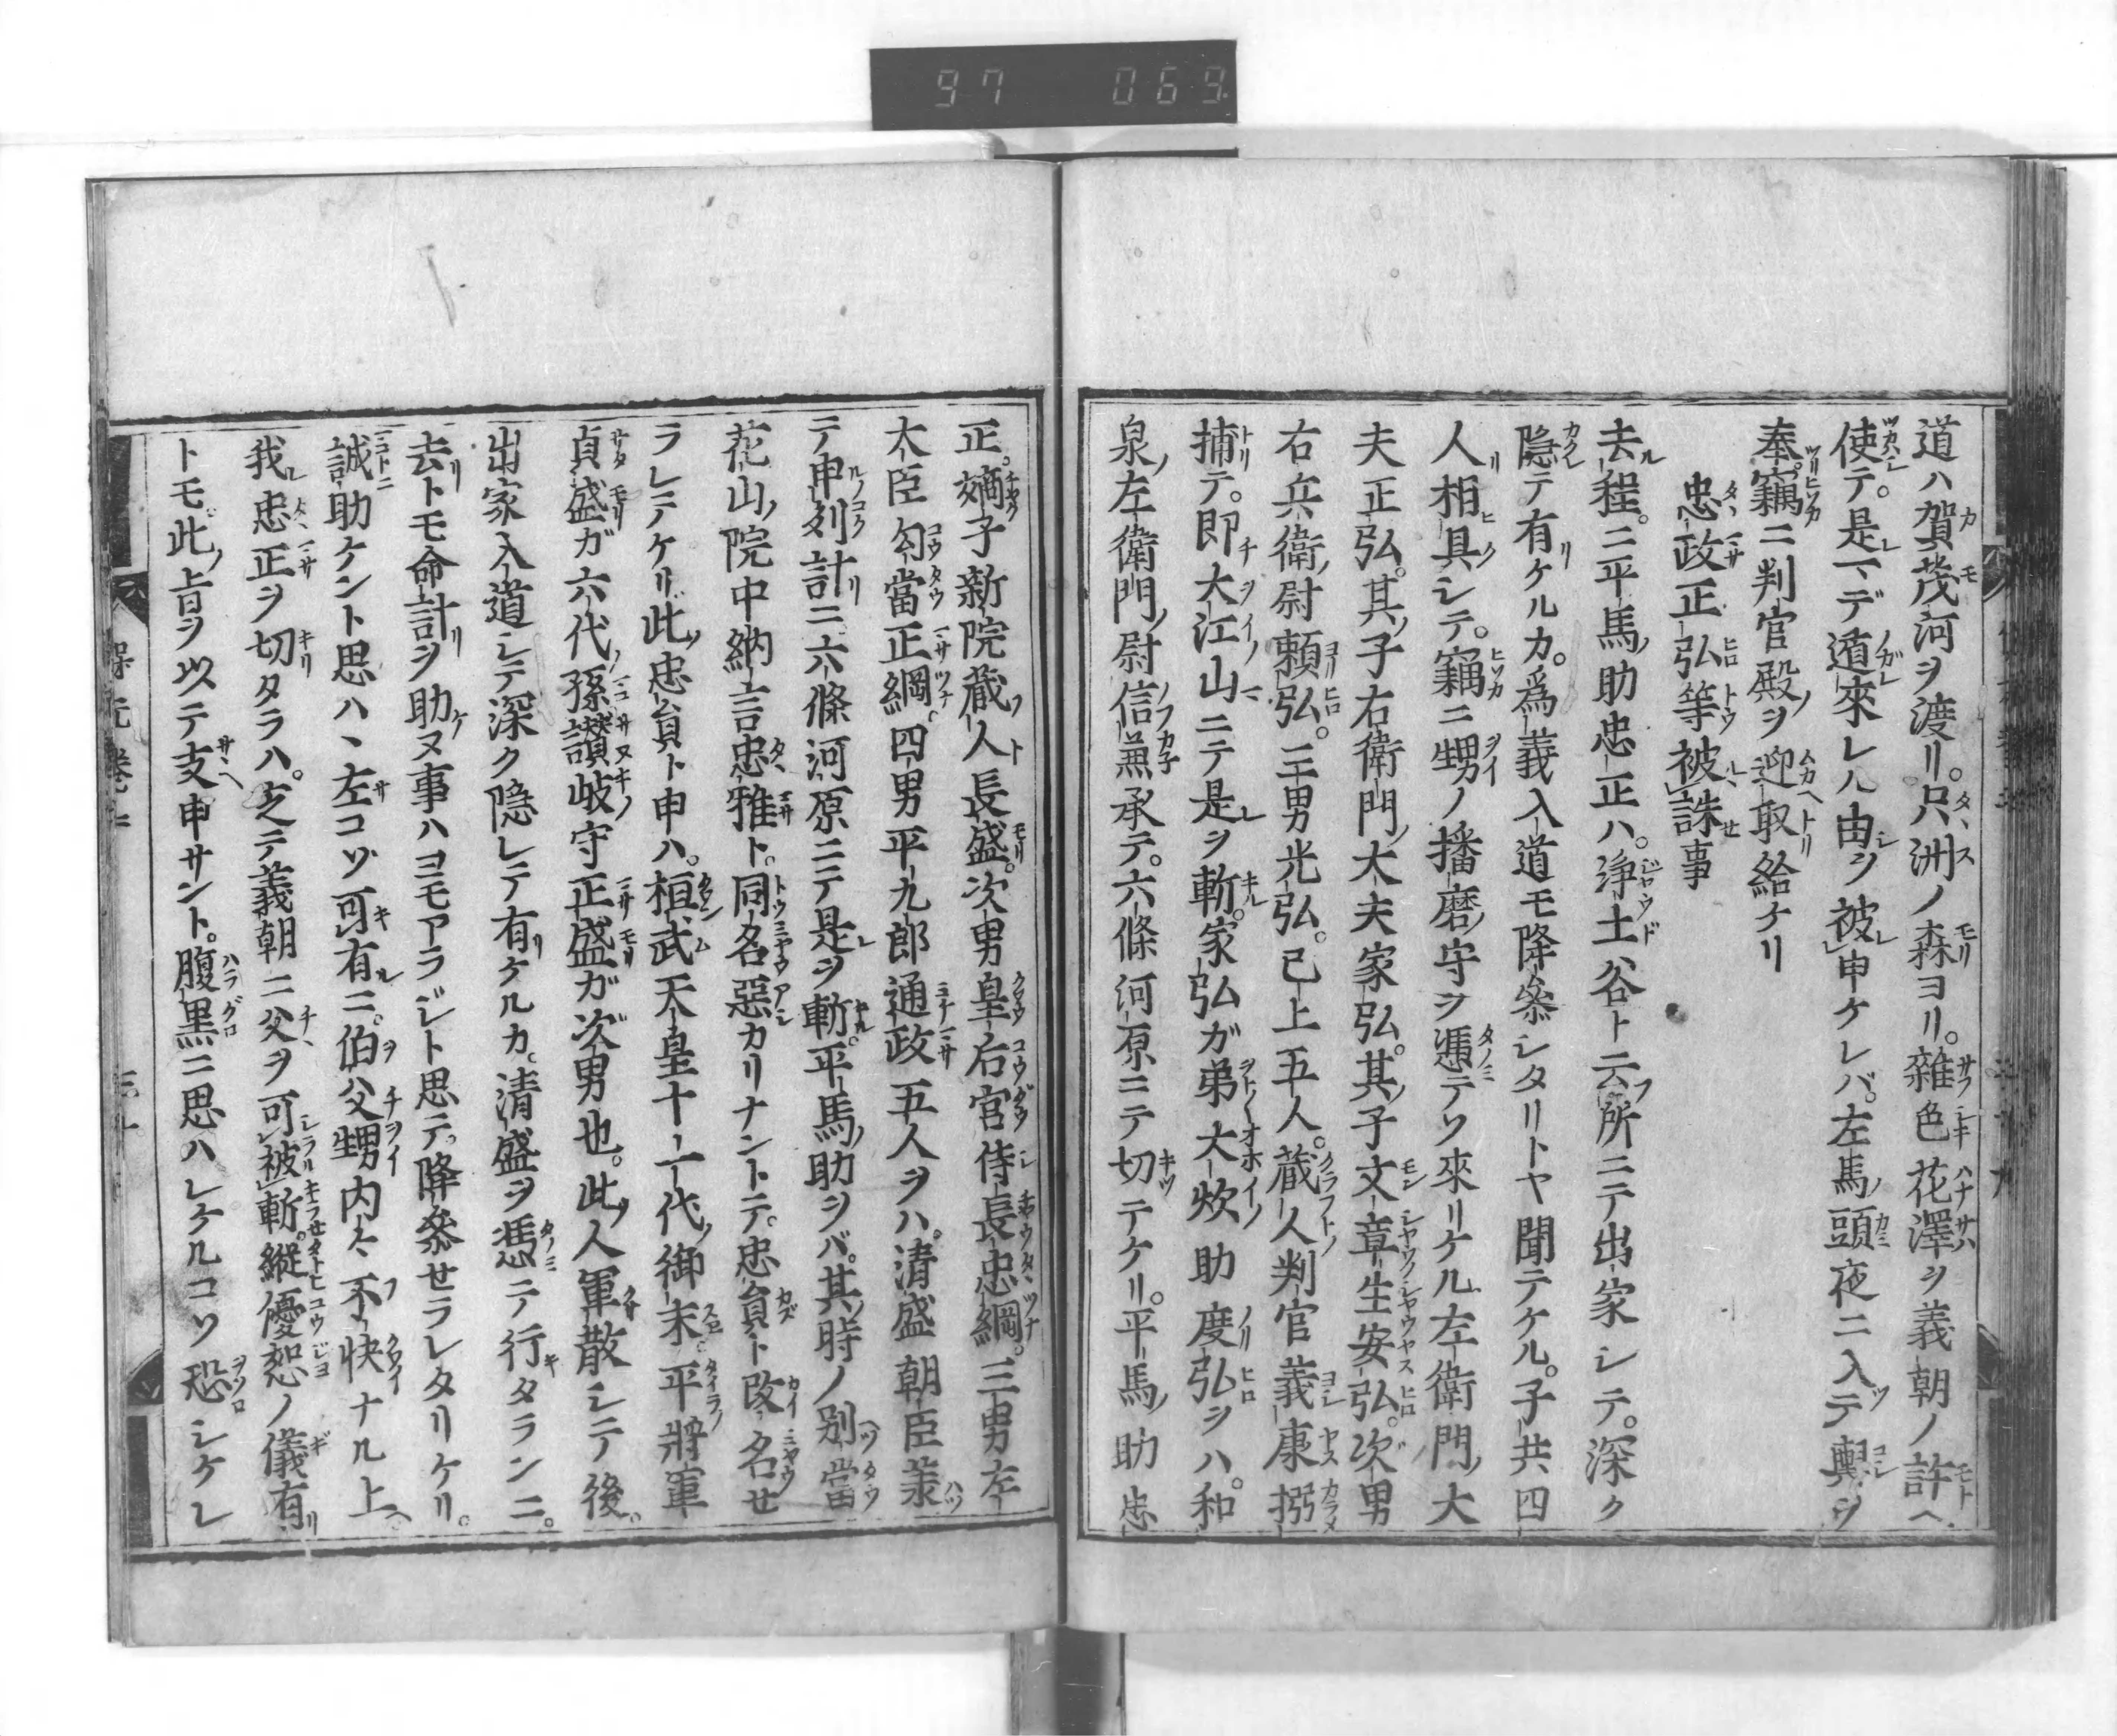 97 069
道ハ賀茂河ヲ渡リ。只洲ノ森ヨリ。雜色花澤ヲ義朝ノ許ヘ
使テ。是マデ遁來レル由ヲ被申ケレバ。左馬頭夜ニ入テ輿ヲ
奉。竊ニ判官殿ヲ迎取給ケリ
忠政正弘等被誅事
去程。ニ平馬助忠正ハ。淨土谷ト云所ニテ出家シテ。深ク
隱テ有ケルカ。爲義入道モ降參シタリトヤ聞テケル。子共四
人相具シテ。竊ニ甥ノ播磨守ヲ憑テソ來リケル左衛門大
夫正弘。其子右衛門大夫家弘。其子文章生安弘。次男
右兵衛尉頼弘。三男光弘。已上五人。蔵人判官義康搦
捕テ。即大江山ニテ是ヲ斬。家弘ガ弟大炊助度弘ヲハ。和
泉左衛門尉信兼承テ。六條河原ニテ切テケリ。平馬助忠
正。嫡子新院蔵人長盛。次男皇后宮侍長忠綱。三男左
大臣勾當正綱。四男平九郎通政五人ヲハ。清盛朝臣羕
テ申刻計ニ六條河原ニテ是ヲ斬。平馬助ヲバ。其時ノ別當
花山院中納言忠雅ト。同名惡カリナントテ。忠貟ト改名せ
ラレテケリ此忠貟ト申ハ。桓武天皇十一代御末。平將軍
貞盛ガ六代孫讃岐守正盛ガ次男也。此人軍散シテ後。
出家入道シテ深ク隱レテ有ケルカ。清盛ヲ憑テ行タランニ。
去トモ命計ヲ助ヌ事ハヨモアラジト思テ。降參せラレタリケリ。
誠助ケント思ハヽ左コソ可有ニ。伯父甥内々不快ナル上ヘ
我忠正ヲ切タラハ。定テ義朝ニ父ヲ可被斬。縦優恕ノ儀有
トモ。此旨ヲ以テ支申サント。腹黒ニ思ハレケルコソ恐シケレ
保元巻二